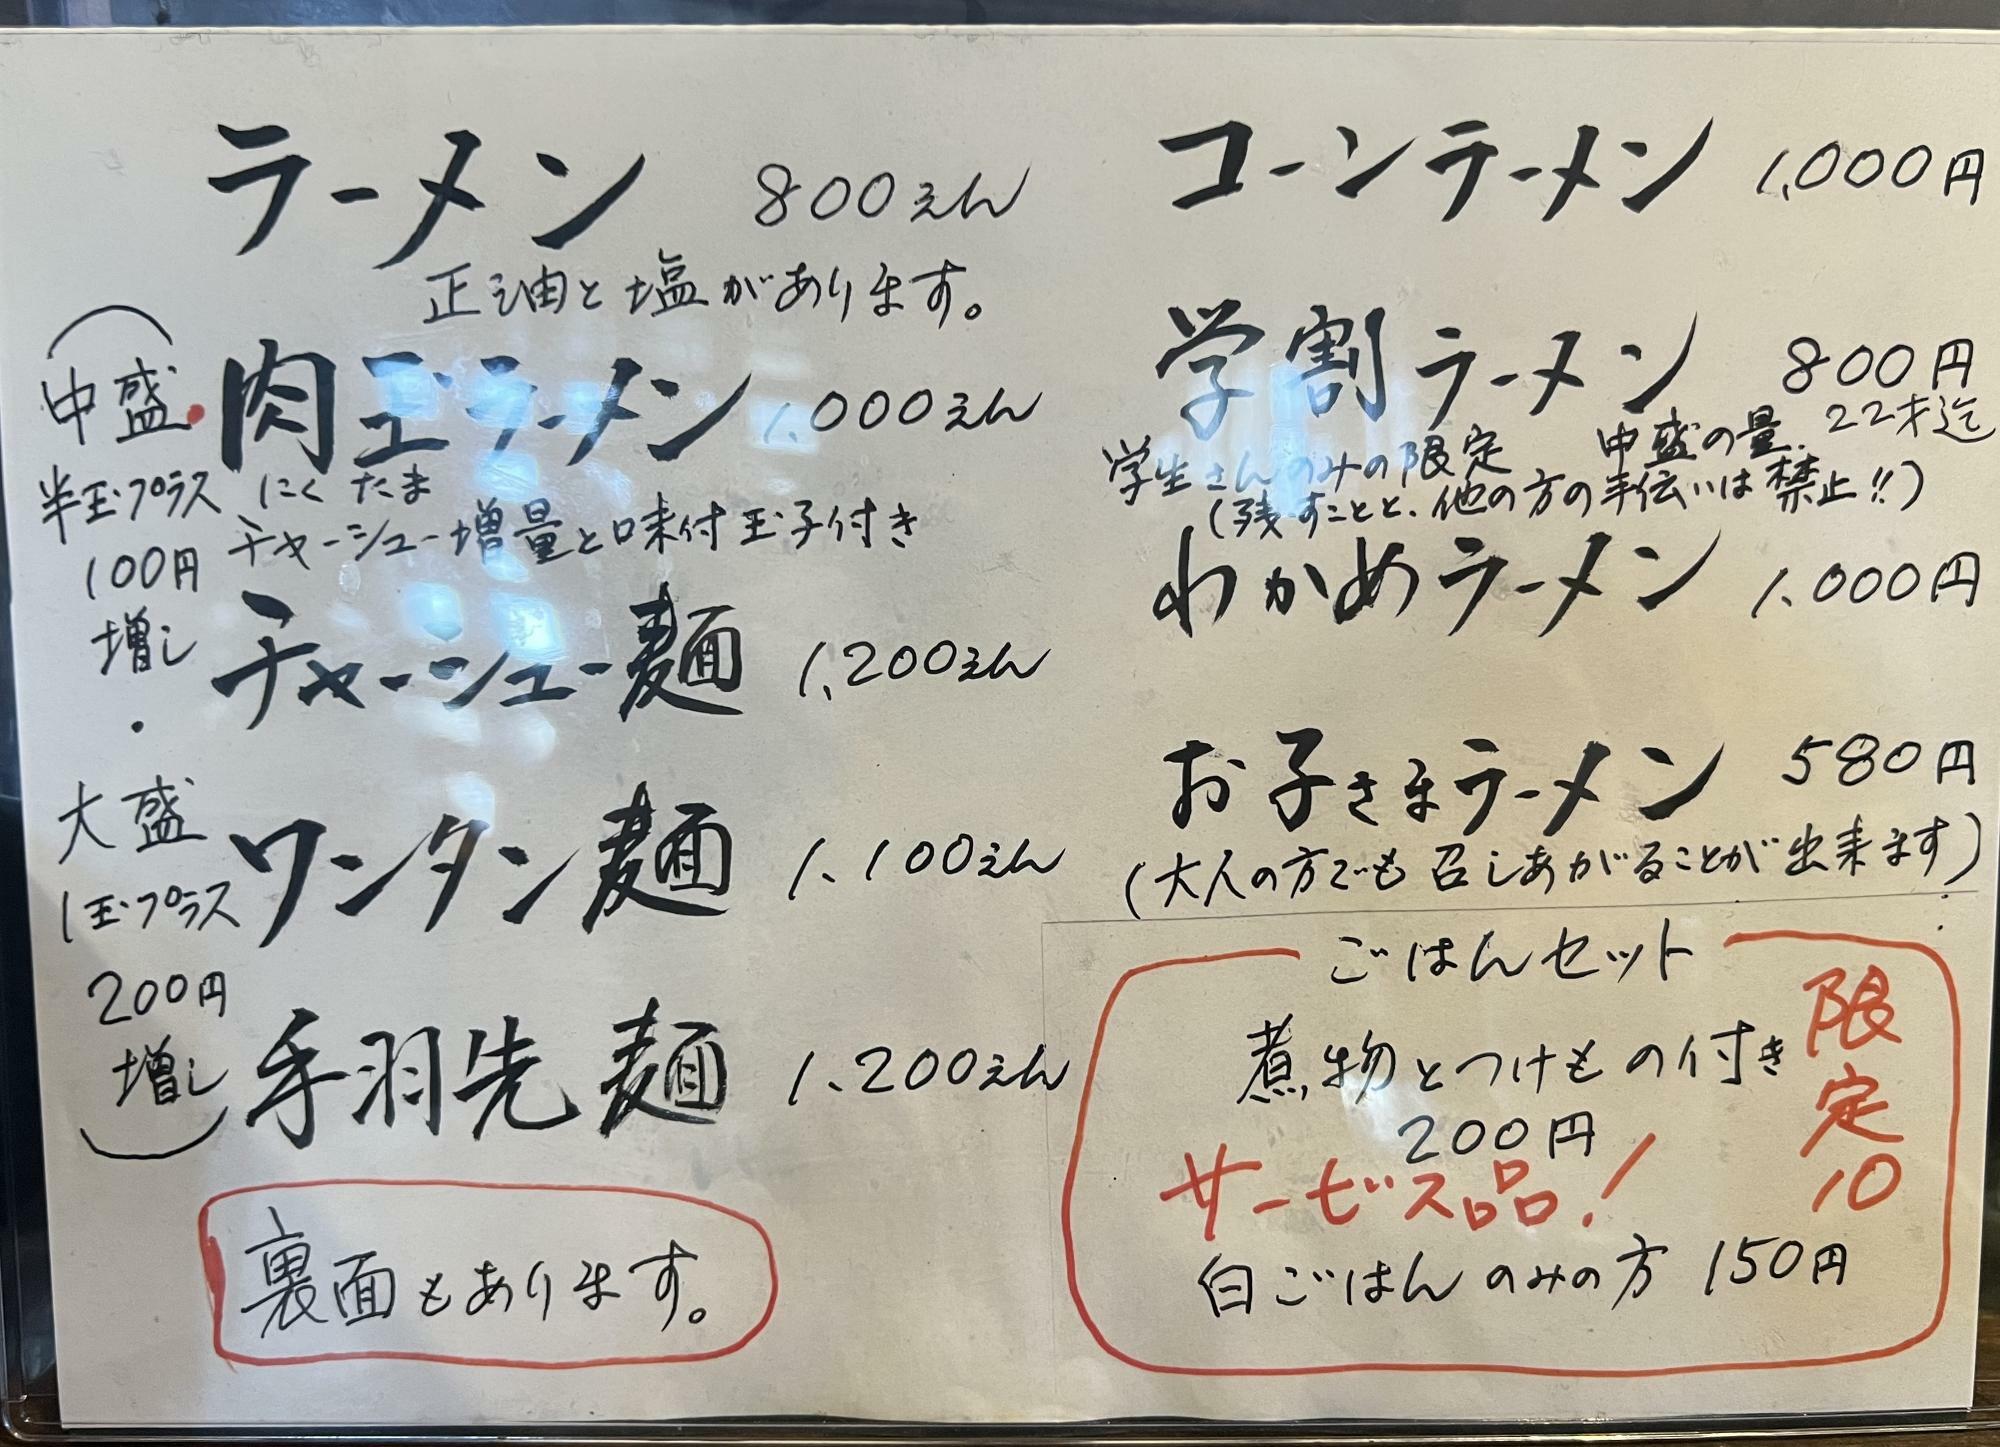 ラーメン 800えん
正油と塩があります。
肉玉ラーメン 1,000えん
にくたま
チャーシュー増量と味付玉子付き
チャーシュー麺 1,200えん
ワンタン麺 1,100えん
手羽先麺 1,200えん
(中盛
半玉プラス
100円
増し
・
大盛
1玉プラス
200円
増し)
裏面もあります。
コーンラーメン 1,000円
学割ラーメン 800円
学生さんのみの限定 中盛の量. 22才迄
(残すことと、他の方の手伝いは禁止!!)
わかめラーメン 1,000円
お子さまラーメン 580円
(大人の方でも召しあがることが出来ます)
ごはんセット
煮物とつけもの付き
200円
サービス品!
限定10
白ごはんのみの方 150円